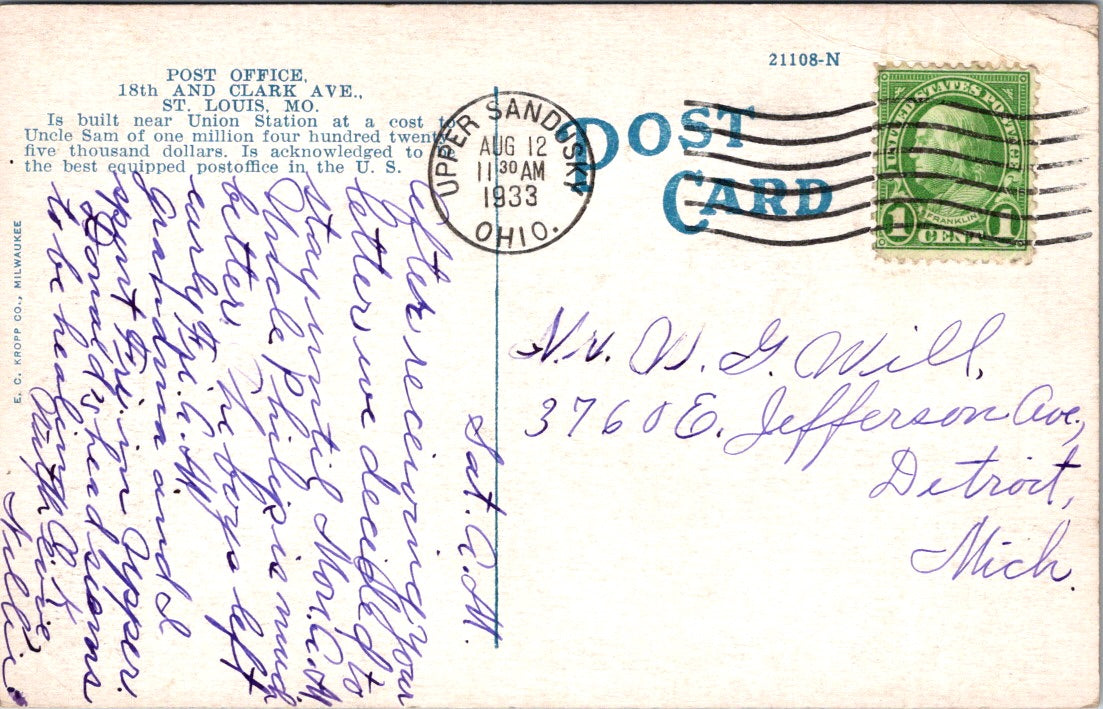 POST OFFICE,
18th AND CLARK AVE.,
ST. LOUIS, MO.
Is built near Union Station at a cost to
Uncle Sam of one million four hundred twenty
five thousand dollars. Is acknowledged to
the best equipped postoffice in the U. S.
E. C. KROPP CO., MILWAUKEE
21108-N
POST
CARD
UPPER SANDUSKY
AUG 12
11 30 AM
1933
OHIO.
UNITED STATES POSTAGE
FRANKLIN
1 CENT 1
Sat. A.M.
After receiving your
letter we decided to
stay until Mon. A.M.
Uncle Philip is much
better. The boys left
early Fri. A.M.
Grandma and I
spent Fri. in Upper.
Donald's head seems
to be healing O.K.
With Love
Mr. W. G. Will,
3760 E. Jefferson Ave.,
Detroit,
Mich.